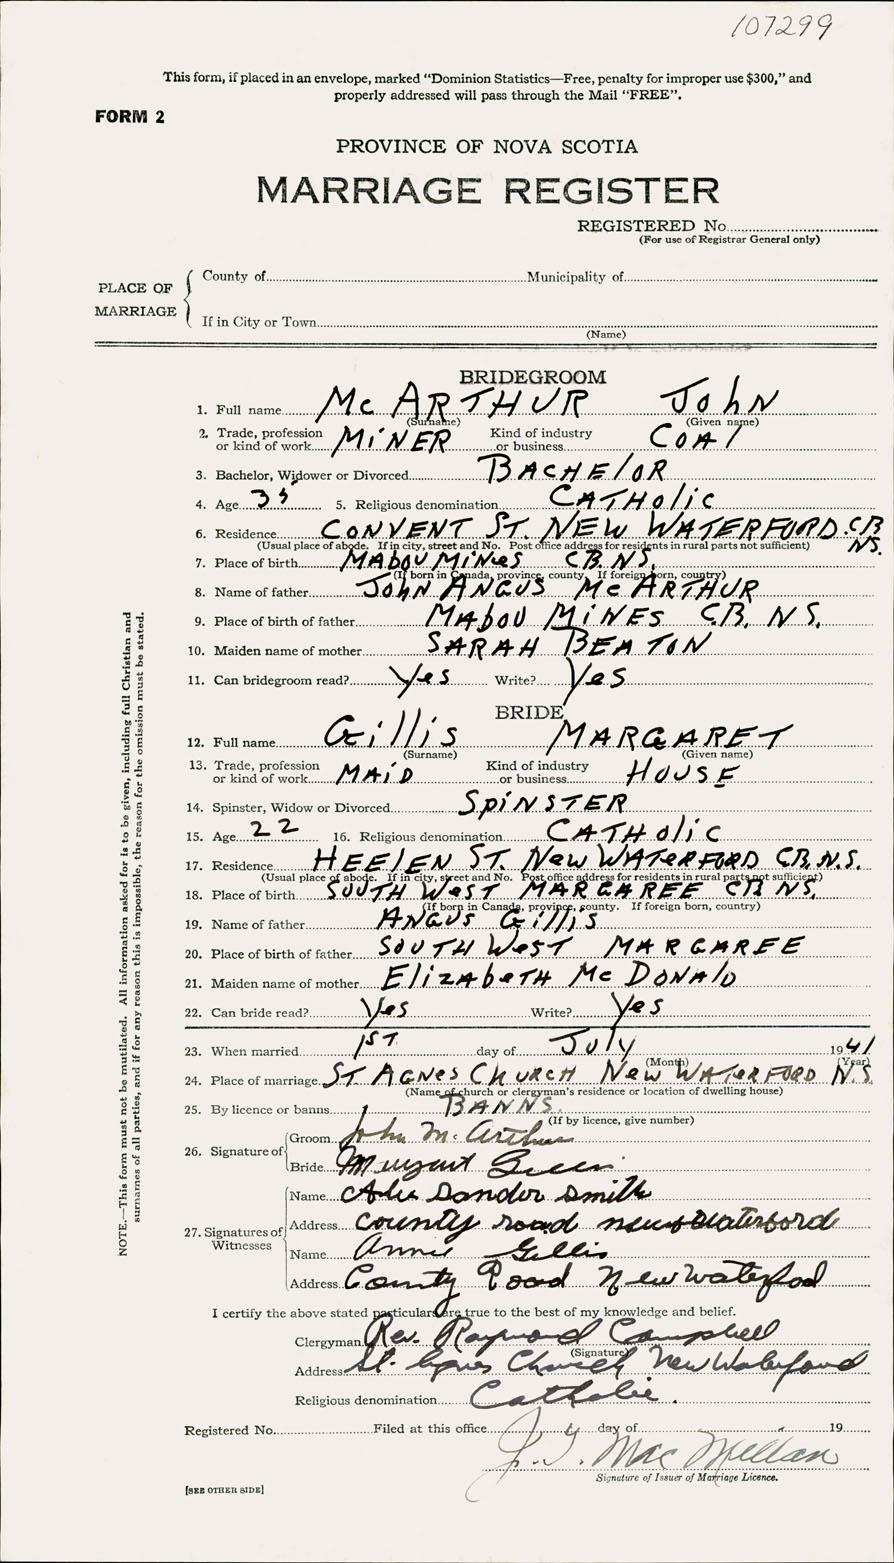 107299
This form, if placed in an envelope, marked “Dominion Statistics—Free, penalty for improper use $300,” and
properly addressed will pass through the Mail “FREE”.
FORM 2
PROVINCE OF NOVA SCOTIA
MARRIAGE REGISTER
REGISTERED No.
(For use of Registrar General only)
PLACE OF MARRIAGE
County of Municipality of
If in City or Town
(Name)
BRIDEGROOM
1. Full name McARTHUR JOHN
(Surname) (Given name)
2. Trade, profession or kind of work MINER Kind of industry or business COAl
3. Bachelor, Widower or Divorced BACHElOR
4. Age 35 5. Religious denomination CATHOlic
6. Residence CONVENT ST. NEW WATERFORD C.B. N.S.
(Usual place of abode. If in city, street and No. Post office address for residents in rural parts not sufficient)
7. Place of birth MABOU MINES C.B. N.S.
(If born in Canada, province, county. If foreign born, country)
8. Name of father JOHN ANGUS McARTHUR
9. Place of birth of father MABOU MINES C.B. N.S.
10. Maiden name of mother SARAH BEATON
11. Can bridegroom read? Yes Write? Yes
BRIDE
12. Full name Gillis MARGARET
(Surname) (Given name)
13. Trade, profession or kind of work MAID Kind of industry or business HOUSE
14. Spinster, Widow or Divorced SPINSTER
15. Age 22 16. Religious denomination CATHOlic
17. Residence HEElEN ST. New WATERFORD C.B. N.S.
(Usual place of abode. If in city, street and No. Post office address for residents in rural parts not sufficient)
18. Place of birth SOUTH WEST MARGAREE C.B. N.S.
(If born in Canada, province, county. If foreign born, country)
19. Name of father ANGUS Gillis
20. Place of birth of father SOUTH WEST MARGAREE
21. Maiden name of mother ElizAbeTH McDONAlD
22. Can bride read? Yes Write? Yes
23. When married 1ST day of July 1941
(Month) (Year)
24. Place of marriage ST AGNES CHURCH New WATERFORD N.S.
(Name of church or clergyman's residence or location of dwelling house)
25. By licence or banns BANNS
(If by licence, give number)
26. Signature of
Groom John McArthur
Bride
27. Signatures of Witnesses
Name Alex Sandor Smith
Address county road new waterford
Name Annie Gillis
Address County Road New Waterfod
I certify the above stated particulars are true to the best of my knowledge and belief.
Clergyman Rev. Raymond Campbell
(Signature)
Address St. Agnes Church New Waterford
Religious denomination Catholic.
Registered No. Filed at this office day of 19
J. J. MacMillan
Signature of Issuer of Marriage Licence.
[SEE OTHER SIDE]
NOTE.—This form must not be mutilated. All information asked for is to be given, including full Christian and
surnames of all parties, and if for any reason this is impossible, the reason for the omission must be stated.